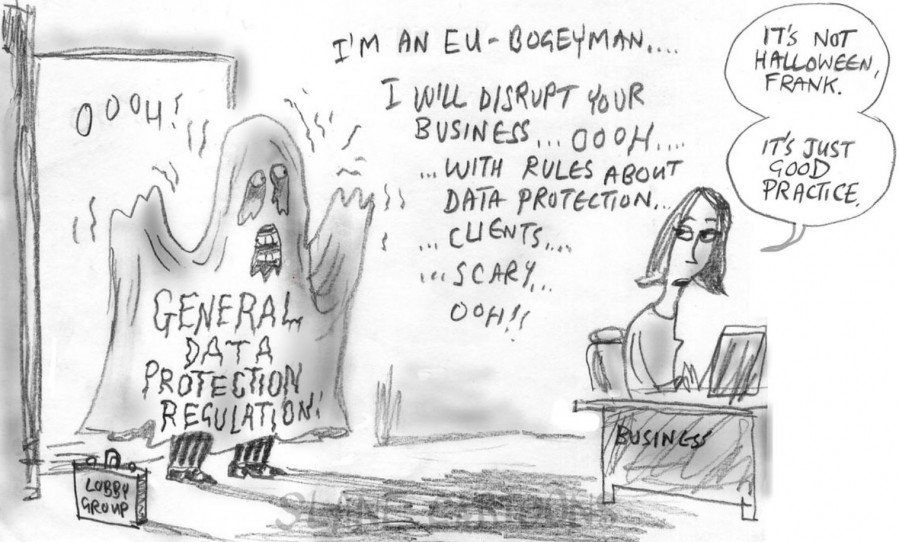 OOOH!
I'M AN EU-BOGEYMAN....
I WILL DISRUPT YOUR
BUSINESS... OOOH....
...WITH RULES ABOUT
DATA PROTECTION...
...CLIENTS....
...SCARY...
OOH!!
IT'S NOT
HALLOWEEN,
FRANK.
IT'S JUST
GOOD
PRACTICE.
GENERAL
DATA
PROTECTION
REGULATION!
LOBBY
GROUP
BUSINESS
CARTOONS